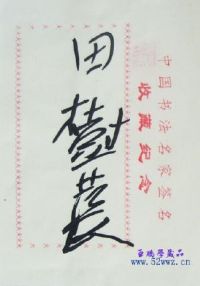 中国书法名家签名
收藏纪念
田樹萇
藏品
www.52wwz.cn